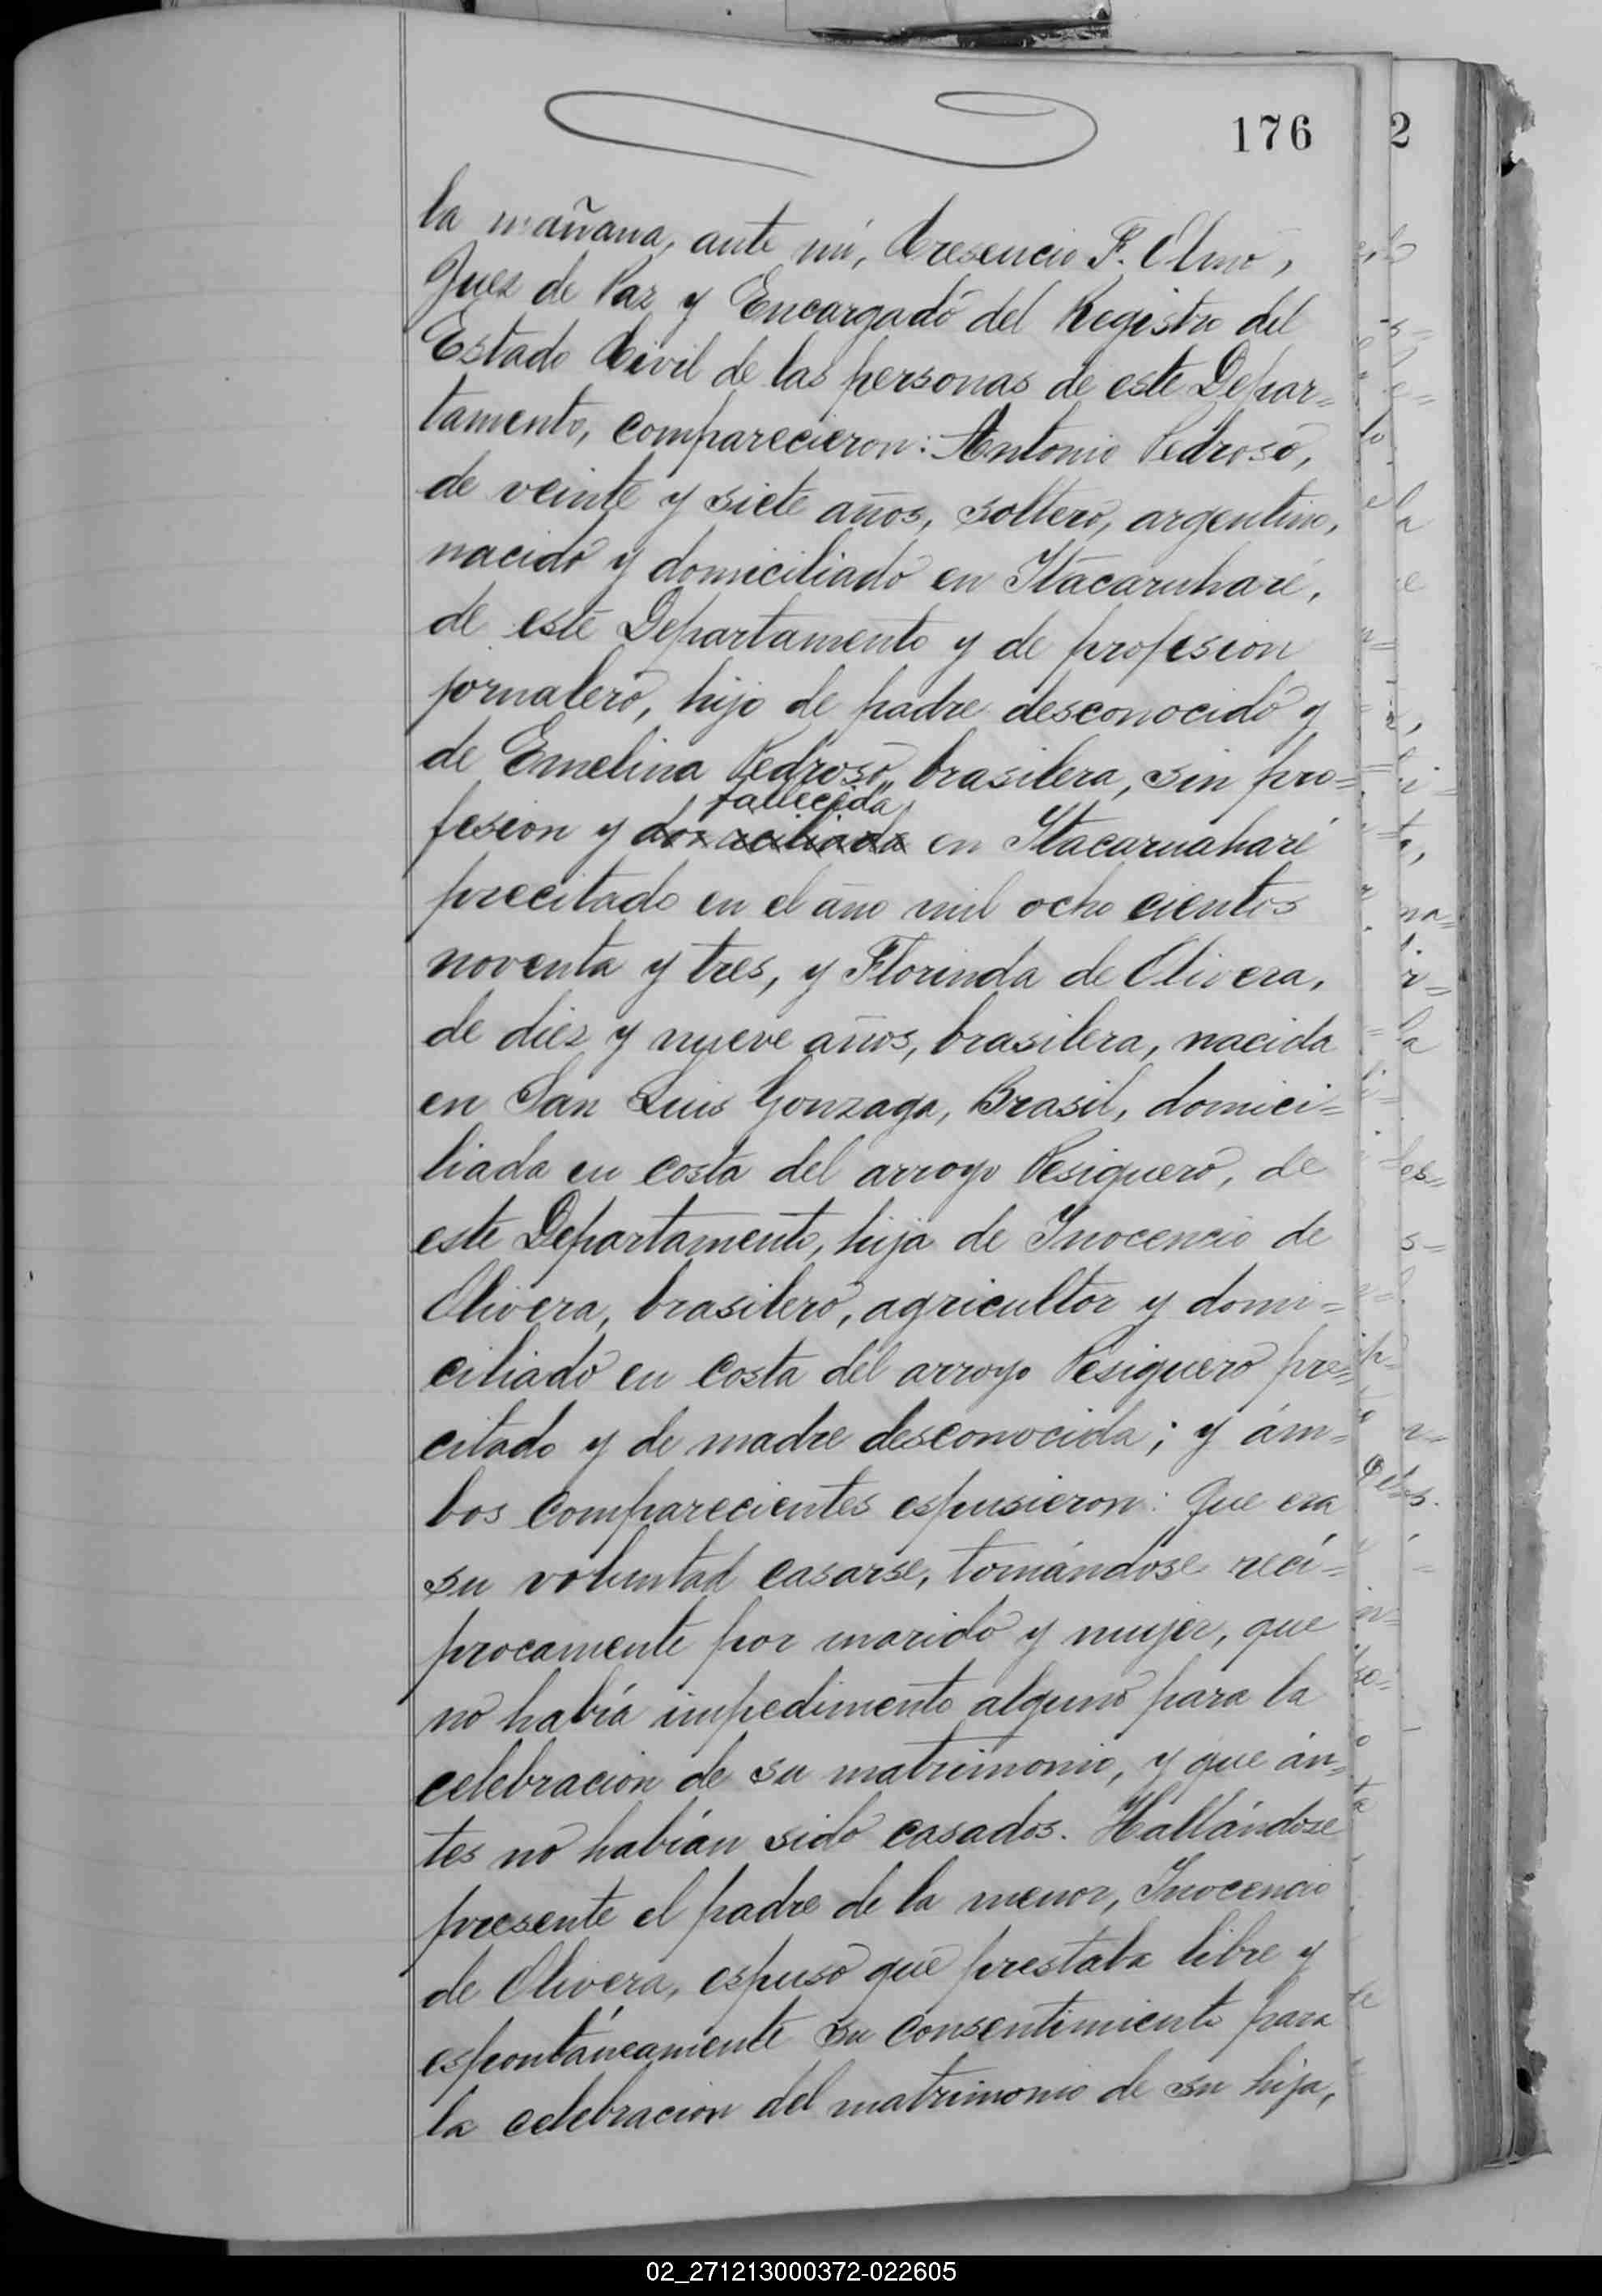 176
2
la mañana, ante mí, Cresencio F. Olmo,
Juez de Paz y Encargado del Registro del
Estado Civil de las personas de este Depar=
tamento, comparecieron: Antonio Pedroso,
de veinte y siete años, soltero, argentino,
nacido y domiciliado en Itacaruharé,
de este Departamento y de profesion
jornalero, hijo de padre desconocido y
de Emelina Pedroso, brasilera, sin pro=
fallecida
fesion y domiciliada en Itacaruaharé
precitado en el año mil ocho cientos
noventa y tres, y Florinda de Olivera,
de diez y nueve años, brasilera, nacida
en San Luis Gonzaga, Brasil, domici=
liada en costa del arroyo Pesiguero, de
este Departamento, hija de Inocencio de
Olivera, brasilero, agricultor y domi=
ciliado en costa del arroyo Pesiguero pre=
citado y de madre desconocida; y ám=
bos comparecientes espusieron: Que era
su voluntad casarse, tomándose recí=
procamente por marido y mujer, que
no había impedimento alguno para la
celebracion de su matrimonio, y que án=
tes no habían sido casados. Hallándose
presente el padre de la menor, Inocencio
de Olivera, espuso que prestaba libre y
espontáneamente su consentimiento para
la celebracion del matrimonio de su hija,
02_271213000372-022605